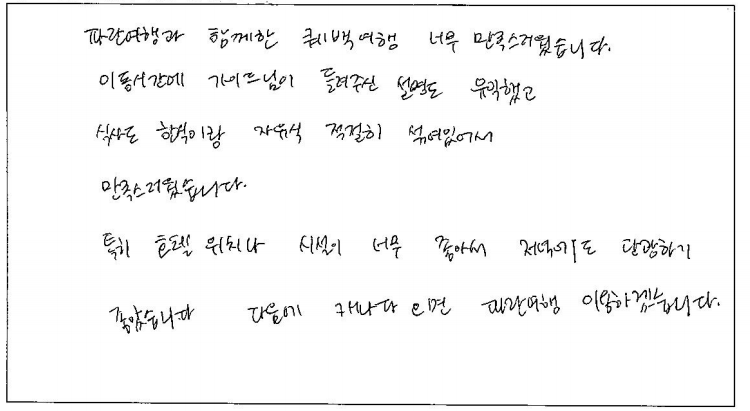 파란여행과 함께한 퀘백여행 너무 만족스러웠습니다.
이동시간에 가이드님이 들려주신 설명도 유익했고
식사도 한식이랑 자유식 적절히 섞여있어서
만족스러웠습니다.
특히 호텔 위치나 시설이 너무 좋아서 저녁에도 관광하기
좋았습니다 다음에 캐나다 오면 파란여행 이용하겠습니다.